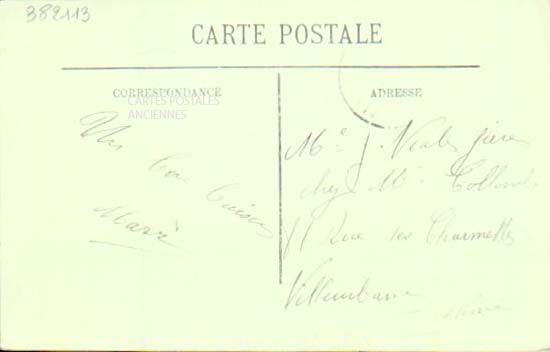 382113
CARTE POSTALE
CORRESPONDANCE
CARTES POSTALES
ANCIENNES
Un bon baiser
Marie
ADRESSE
chez Mr
Rue des Charmettes
Villeurbanne